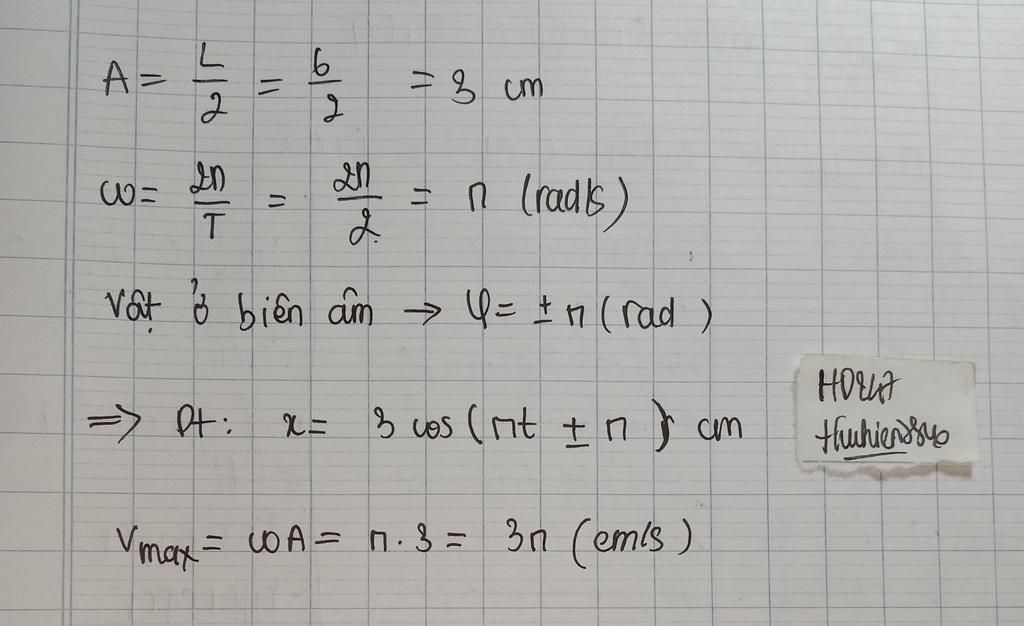 A = L/2 = 6/2 = 3 cm
ω = 2π/T = 2π/2 = π (rad/s)
Vật ở biên âm → φ = ± π (rad)
=> Pt: x = 3 cos (πt ± π) cm
Vmax = ωA = π . 3 = 3π (cm/s)